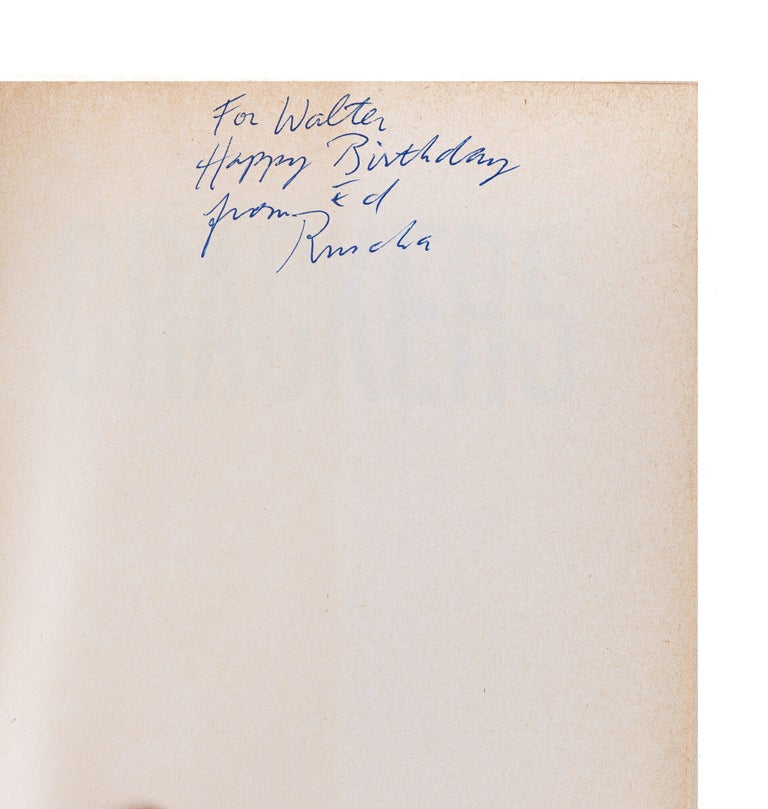 For Walter
Happy Birthday
from Ed
Ruscha
CRACKERS